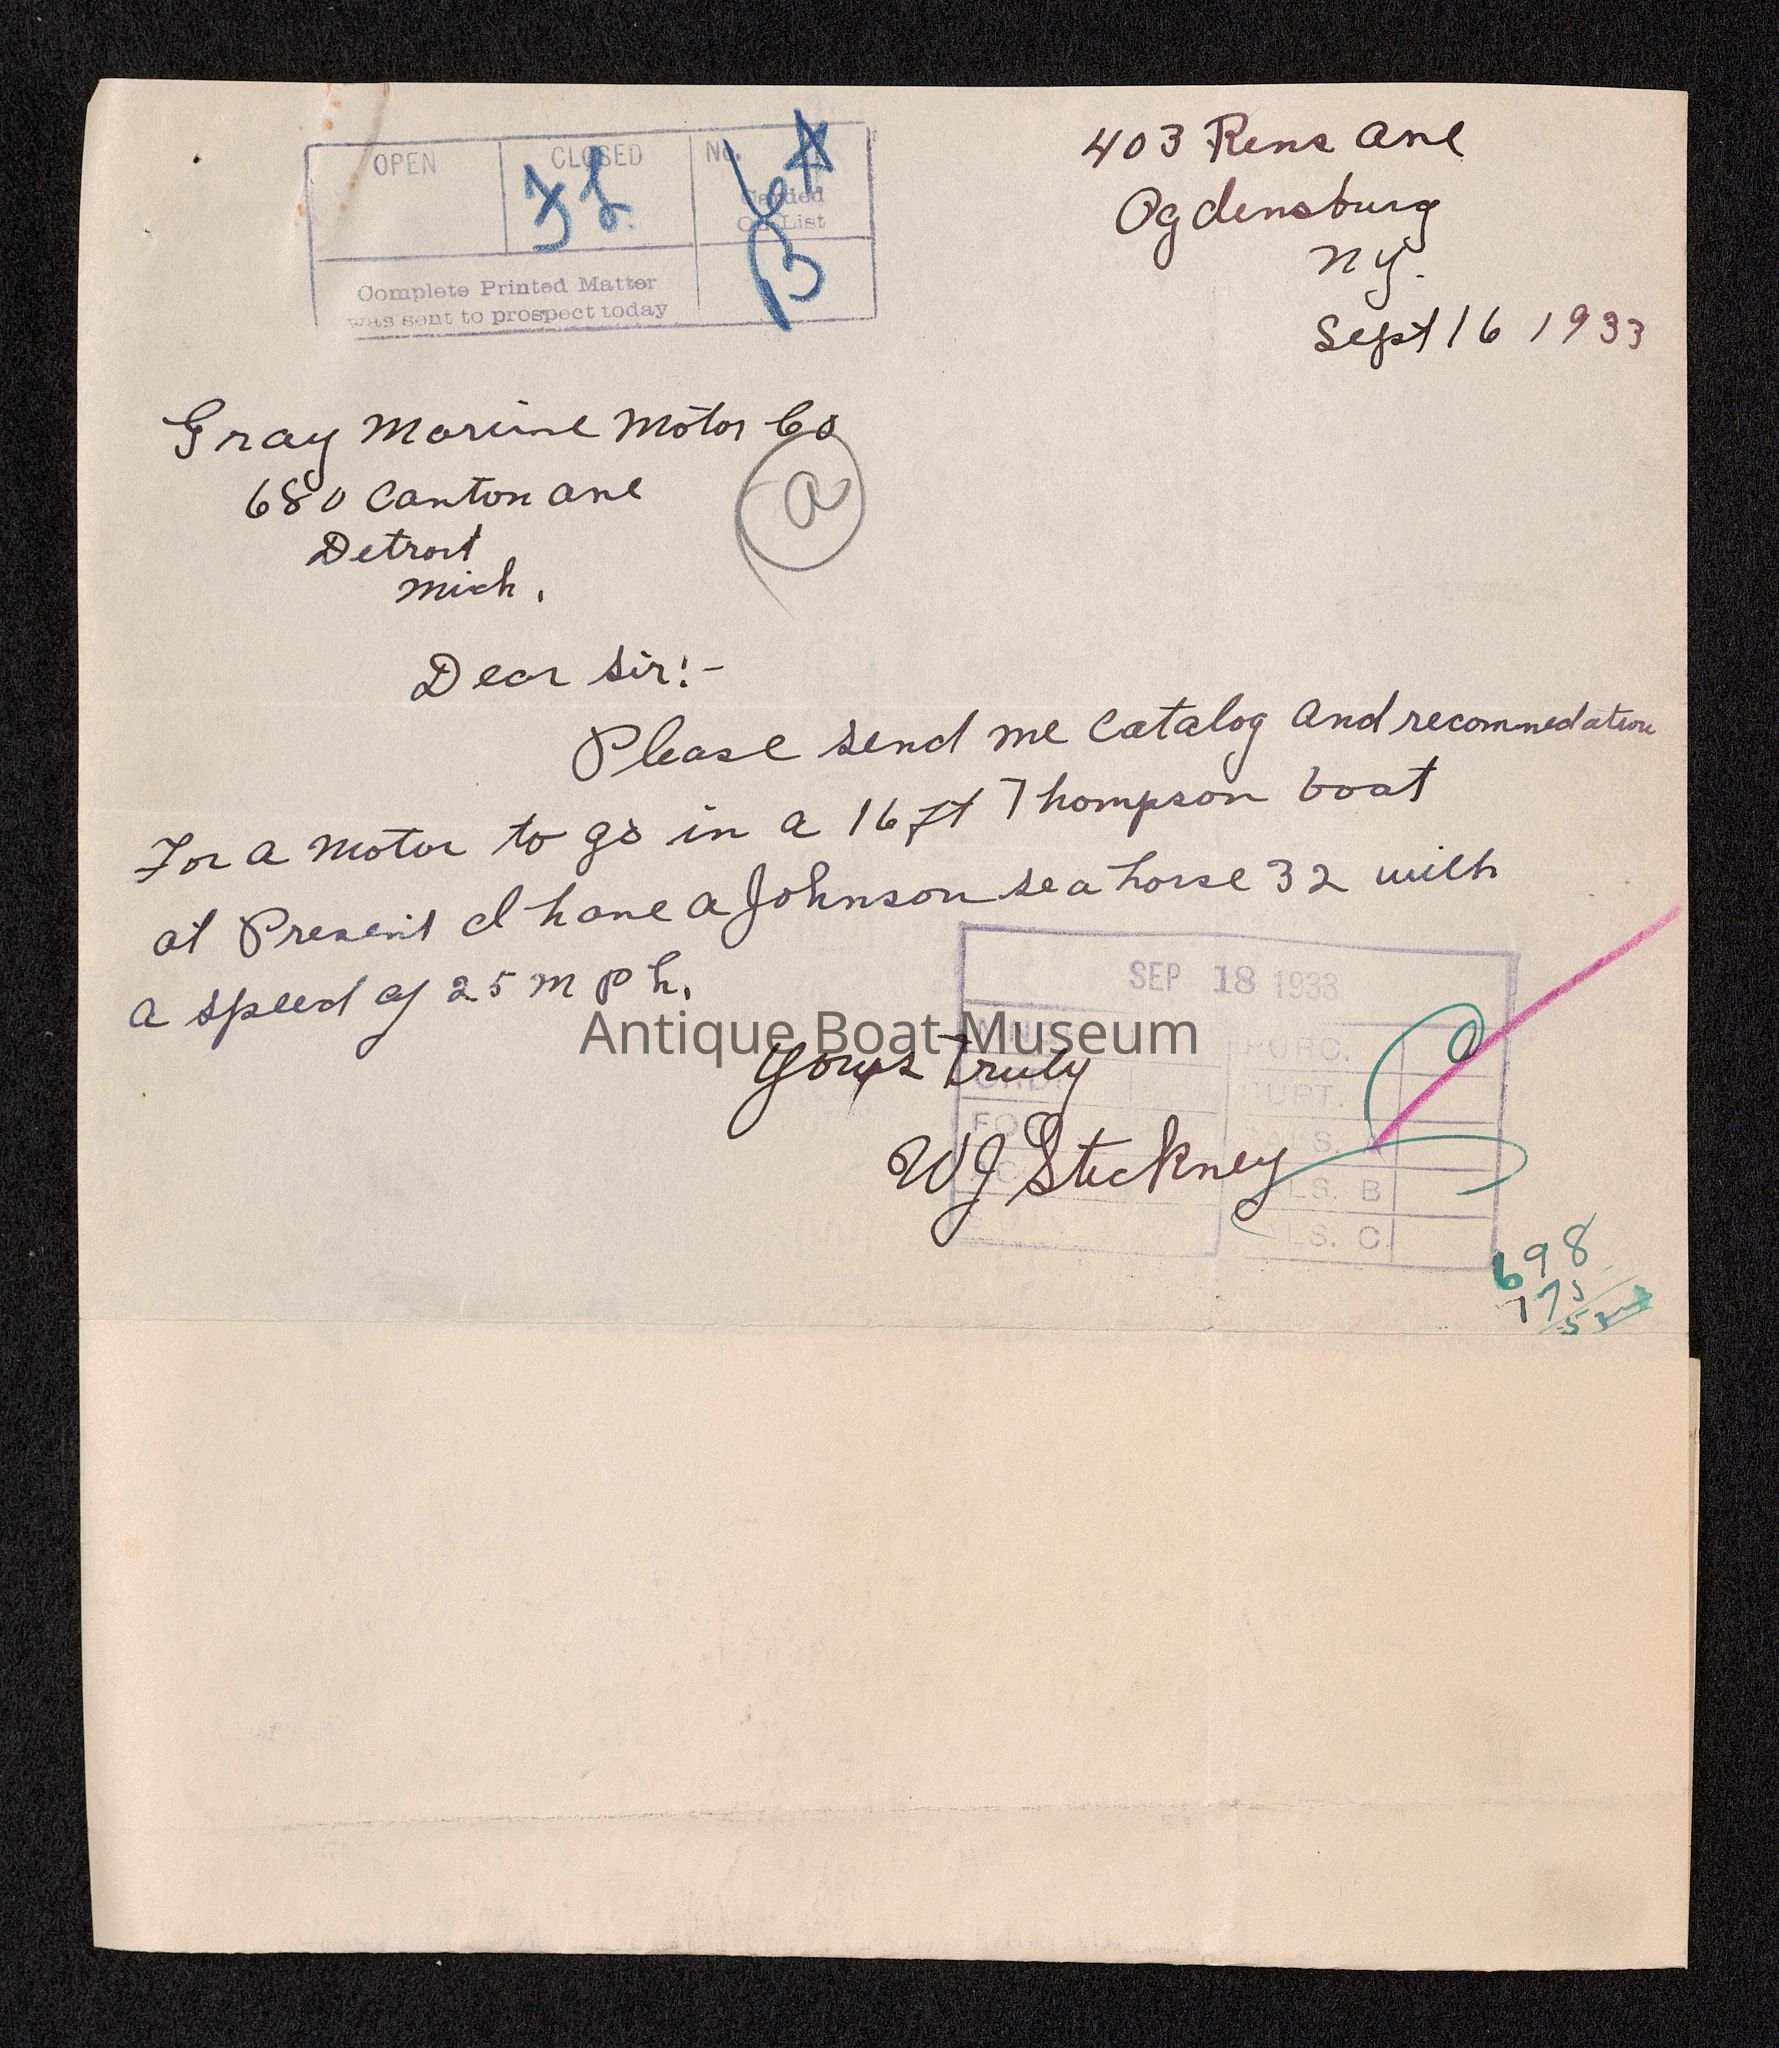 OPEN
CLOSED
No.
On List
Complete Printed Matter
was sent to prospect today
403 Rens ave
Ogdensburg
NY.
Sept 16 1933
Gray Marine Motor Co
680 Canton ave
Detroit
Mich.
a
Dear Sir:-
Please send me catalog and recommedation
For a motor to go in a 16 ft Thompson boat
at Present I have a Johnson seahorse 32 with
a speed of 25 m p h.
Yours Truly
WJ Stickney
SEP 18 1933
PURC.
SUPT.
SALS.
SLS. B
SALS. C.
Antique Boat Museum
698